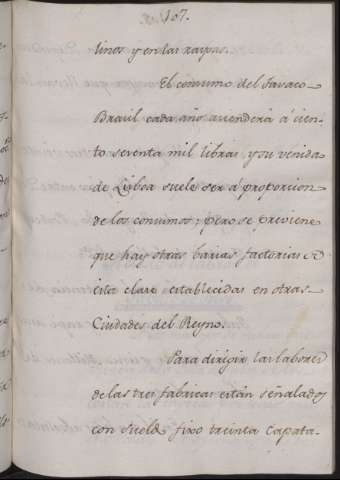 107.
linos y en las rayas.
El consumo del Tavaco
Brasil cada año ascenderá á cien-
to sesenta mil libras y su venida
de Lisboa suele ser á proporcion
de los consumos; pero se previene
que hay otras barias factorias de
esta clase establecidas en otras
Ciudades del Reyno.
Para dirigir las labores
de las tres fabricas están señalados
con sueldo fixo treinta Capata-